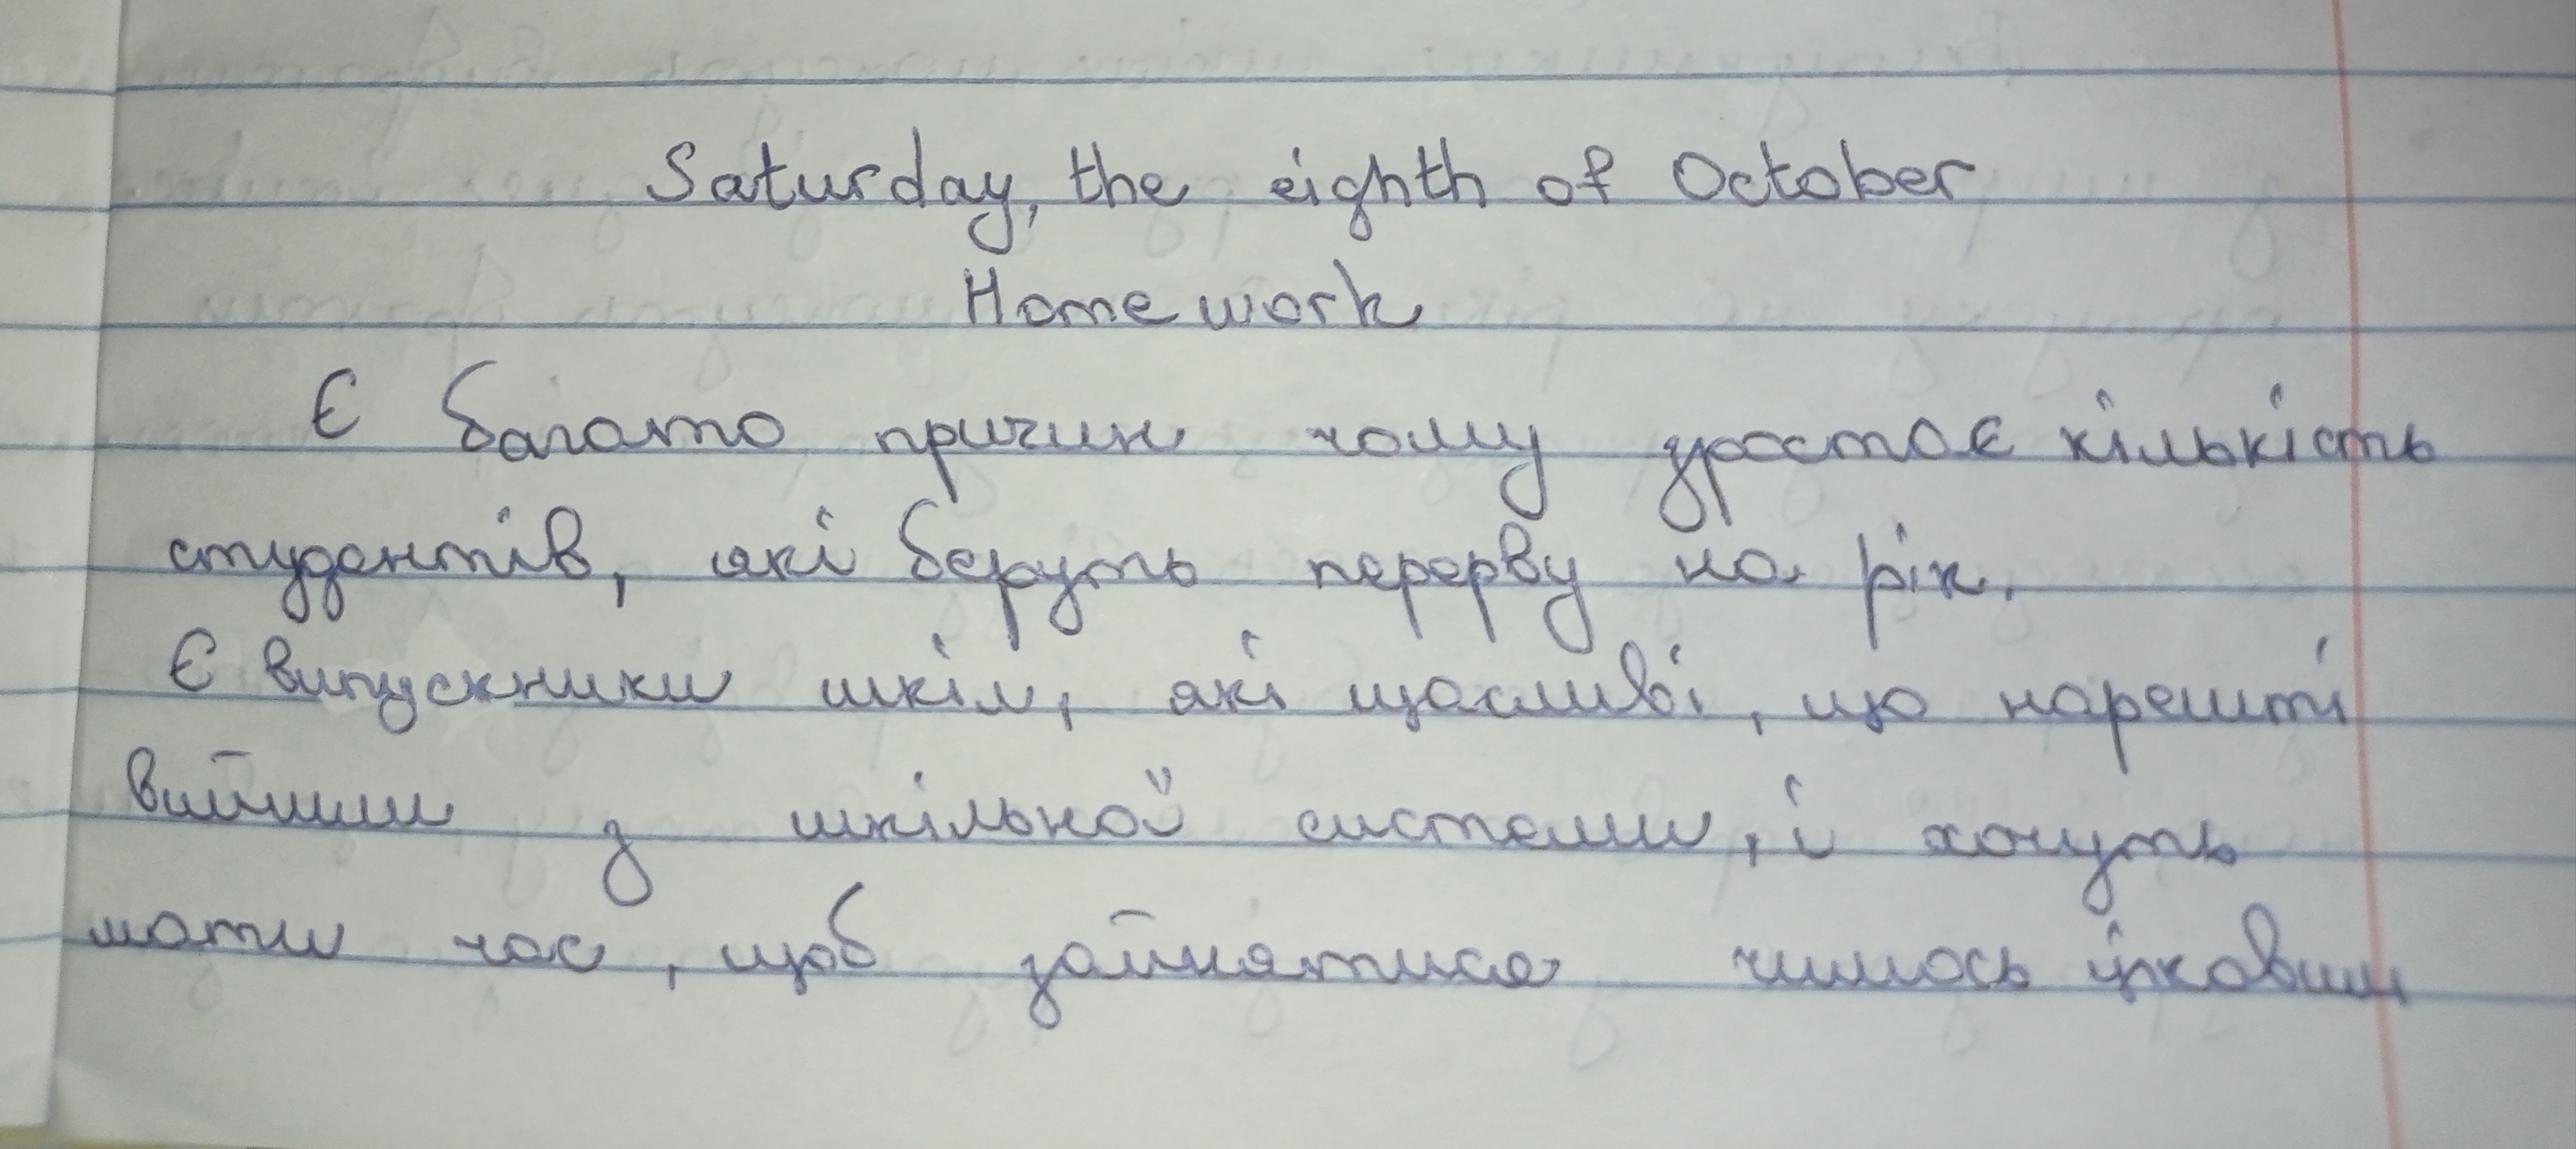 Saturday, the eighth of October
Homework
Є багато причин чому зростає кількість
студентів, які беруть перерву на рік.
Є випускники шкіл, які щасливі, що нарешті
вийшли з шкільної системи, і хочуть
мати час, щоб зайнятися чимось цікавим